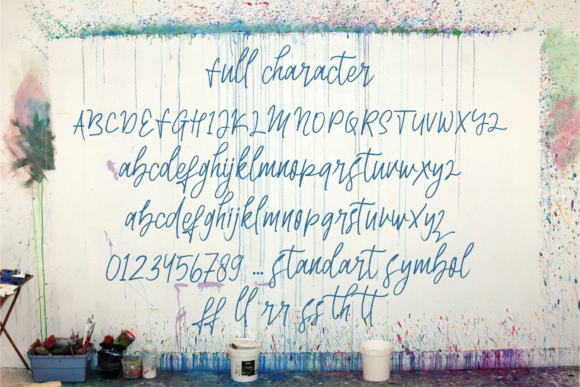 full character
ABCDEFGHIJKLMNOPQRSTUVWXYZ
abcdefghijklmnopqrstuvwxyz
abcdefghijklmnopqrstuvwxyz
0123456789 ... standart symbol
ff ll rr ss th tt